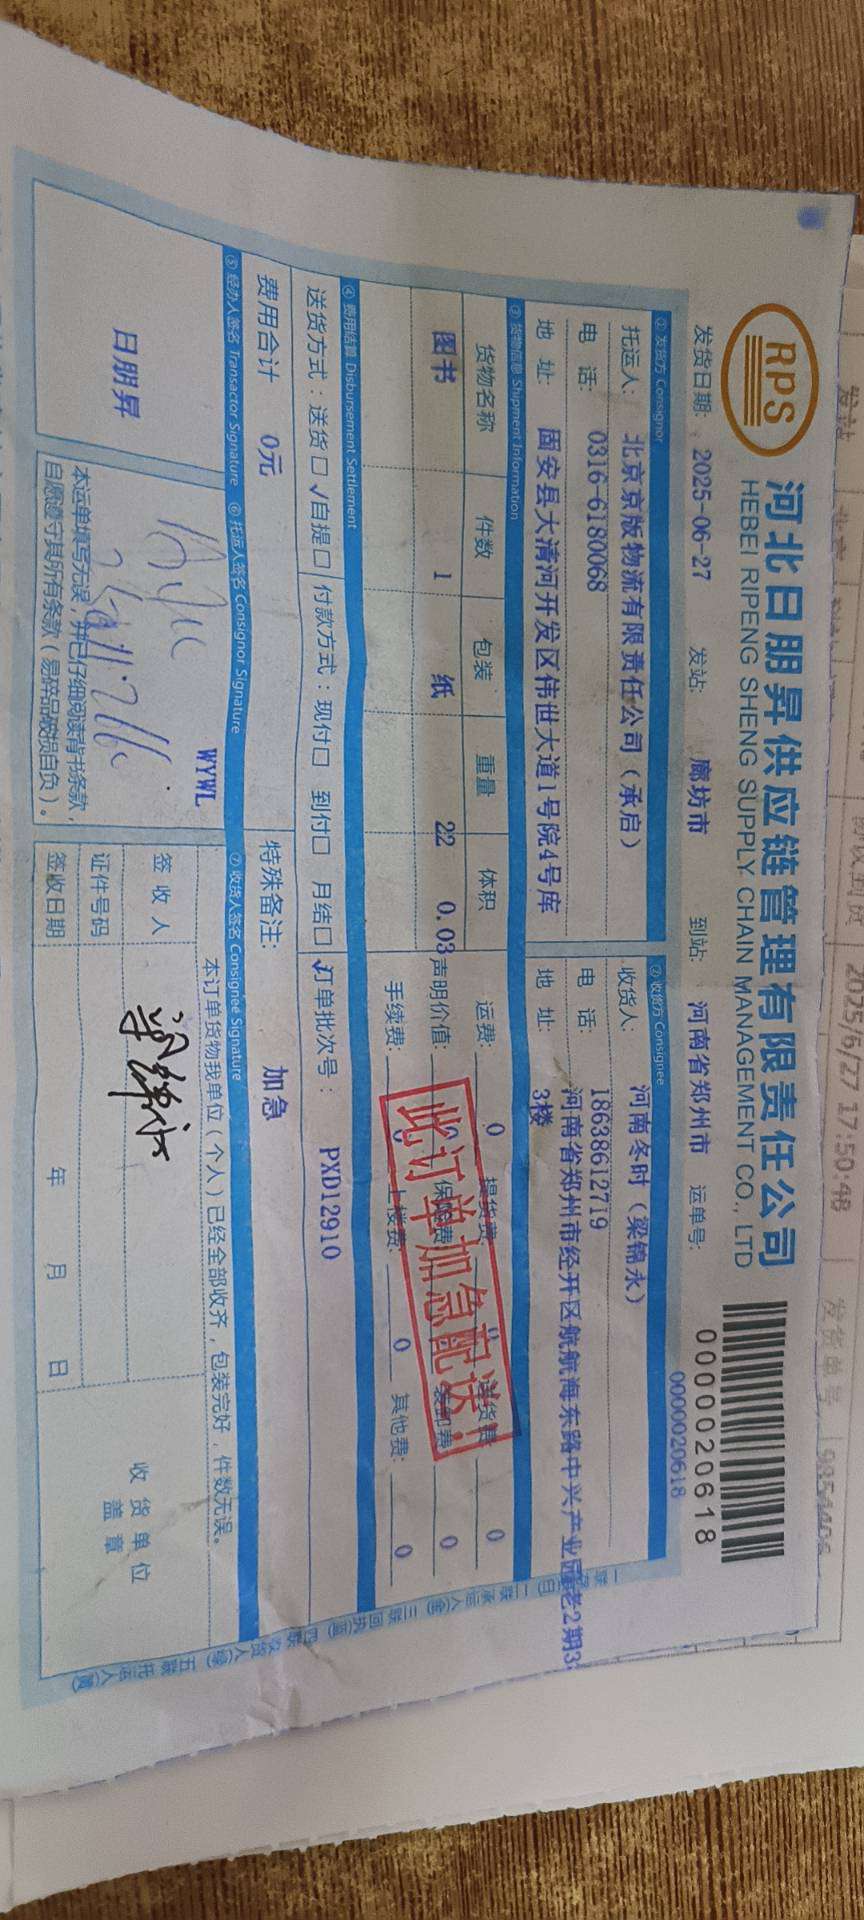 RPS
河北日朋昇供应链管理有限责任公司
HEBEI RIPENG SHENG SUPPLY CHAIN MANAGEMENT CO., LTD
0000020618
发货日期: 2025-06-27 发站: 廊坊市 到站: 河南省郑州市 运单号: 0000020618
① 发货方 Consignor ② 收货方 Consignee
托运人: 北京京版物流有限责任公司（承启） 收货人: 河南冬时（梁锦永）
电 话: 0316-6180068 电 话: 18638612719
地 址: 固安县大清河开发区伟世大道1号院4号库 地 址: 河南省郑州市经开区航航海东路中兴产业园老2期3
3楼
③ 货物信息 Shipment Information
货物名称 件数 包装 重量 体积 运费: 0 提货费 0 送货费 0
图书 1 纸 22 0.03 声明价值: 0 保险费 装卸费 0
手续费: 0 上楼费: 0 其他费: 0
此订单加急配送!
④ 费用结算 Disbursement Settlement
送货方式: 送货□ √自提□ 付款方式: 现付□ 到付□ 月结□ √ 订单批次号: PXD12910
费用合计 0元 特殊备注: 加急
⑤ 经办人签名 Transactor Signature ⑥ 托运人签名 Consignor Signature ⑦ 收货人签名 Consignee Signature
日朋昇
WYWL
本运单填写无误，并已仔细阅读背书条款，
自愿遵守其所有条款（易碎品破损自负）。
本订单货物我单位（个人）已经全部收齐，包装完好，件数无误。
签 收 人
证件号码
签收日期 年 月 日
收 货 单 位
盖 章
2025/6/27 17:50:48
发货单号